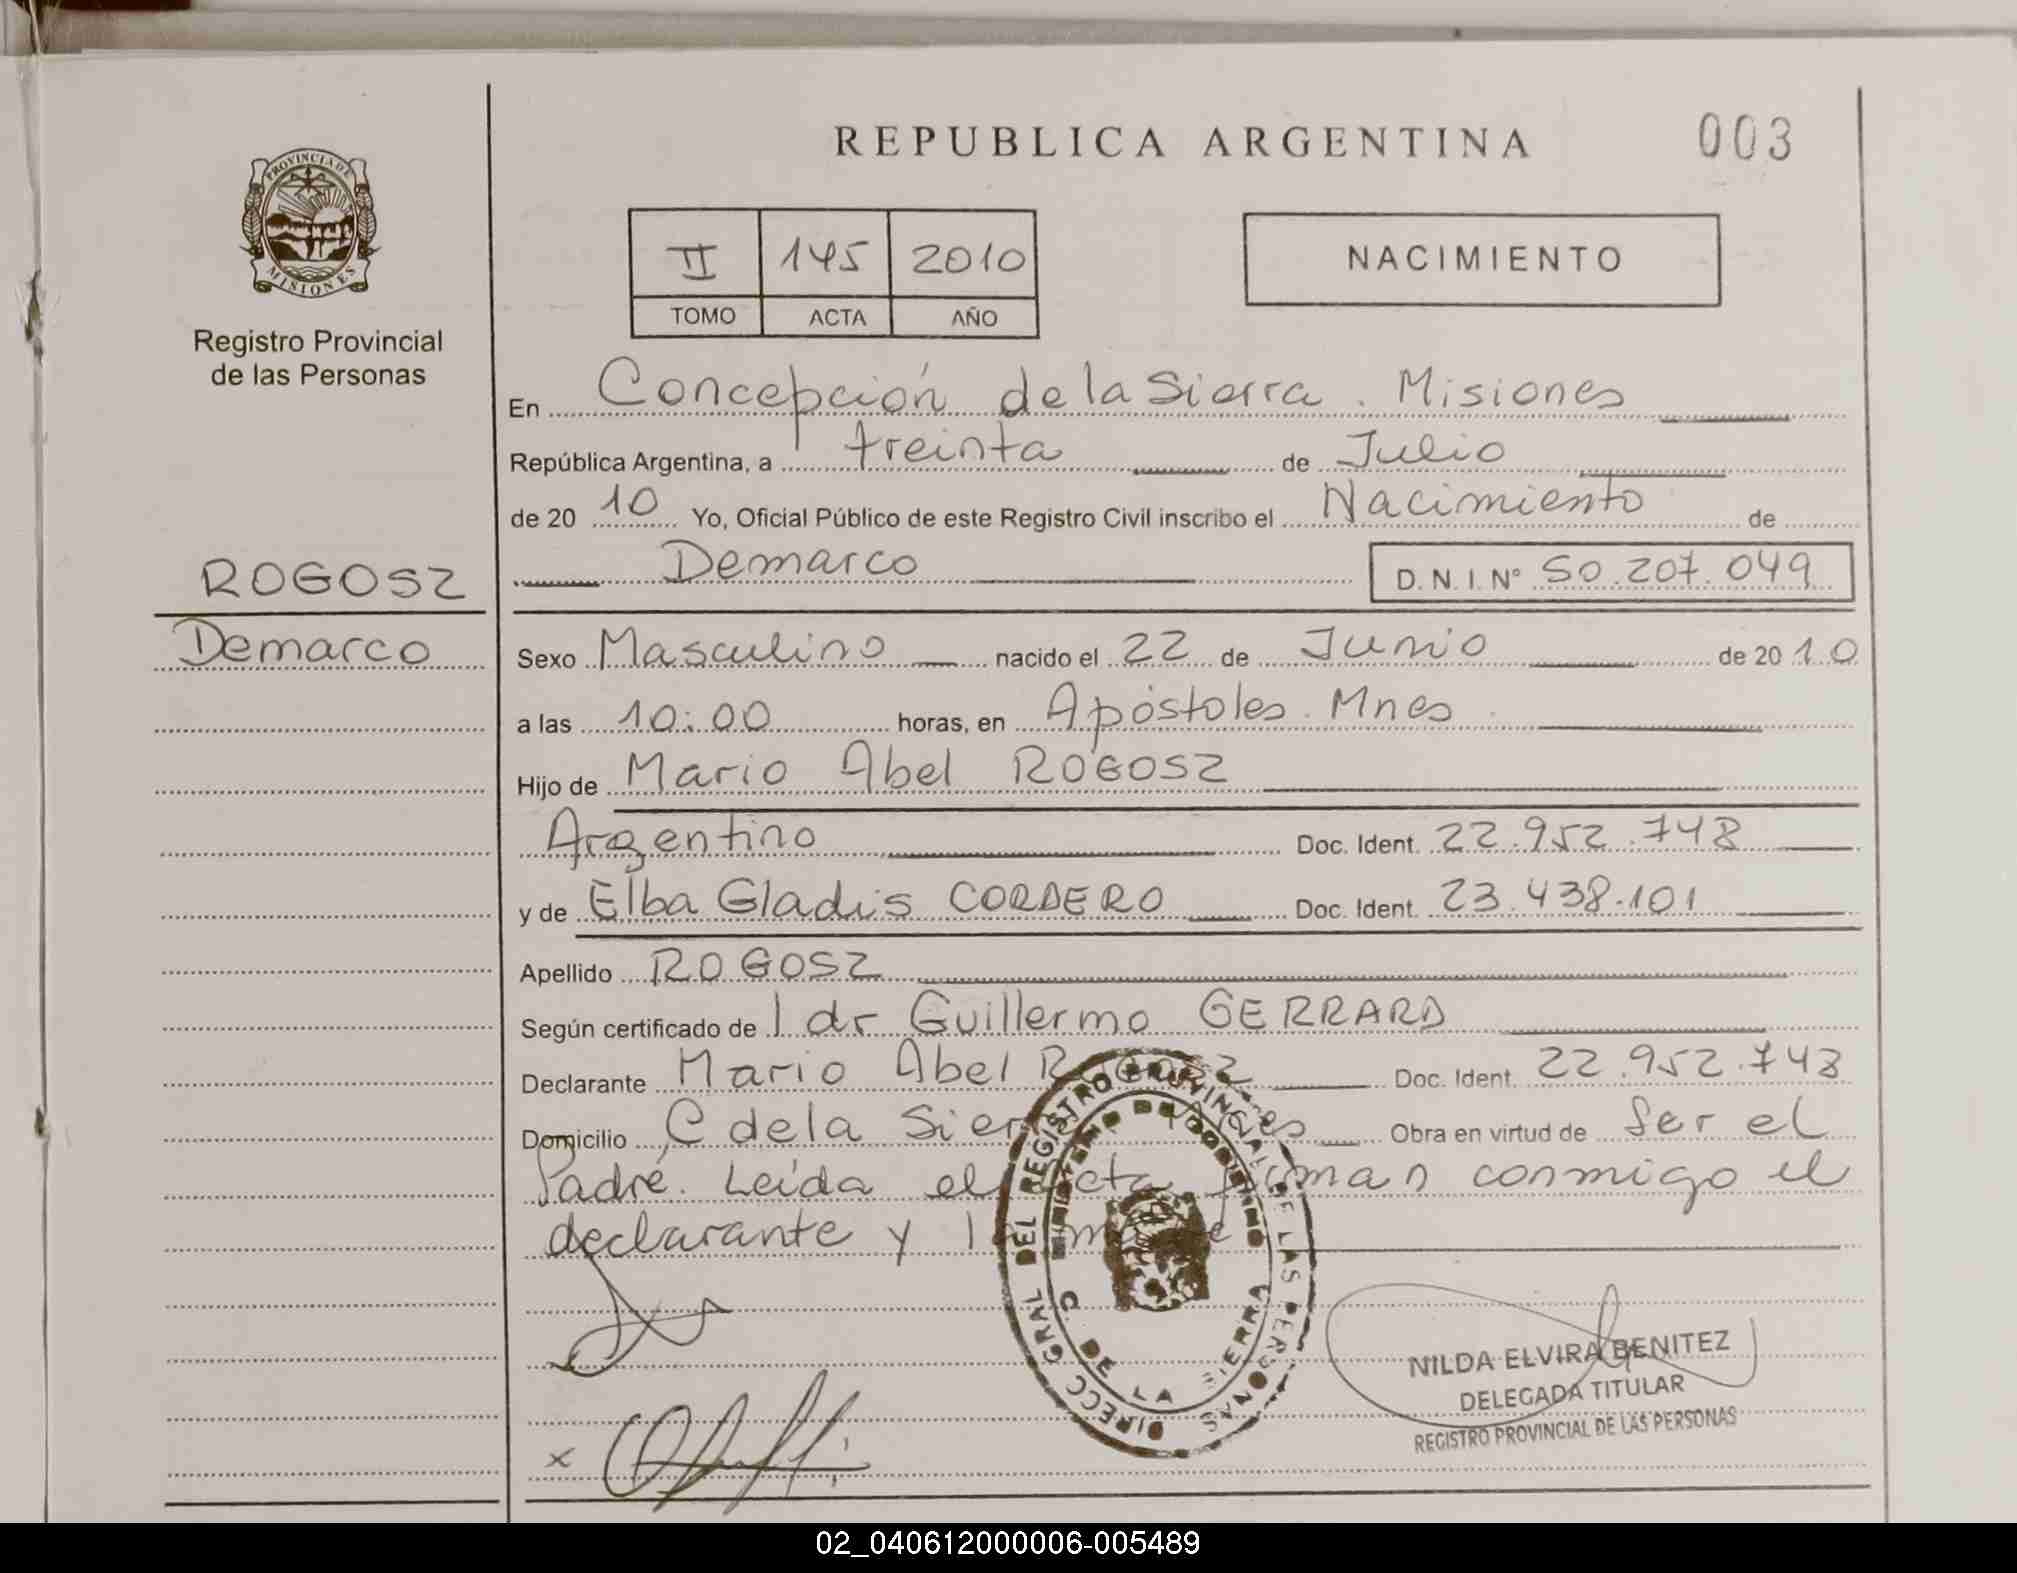 REPUBLICA ARGENTINA
003
PROVINCIA DE MISIONES
Registro Provincial
de las Personas
II 145 2010
TOMO ACTA AÑO
NACIMIENTO
En Concepción de la Sierra. Misiones
República Argentina, a treinta de Julio
de 20 10 Yo, Oficial Público de este Registro Civil inscribo el Nacimiento de
Demarco D.N.I. Nº 50.207.049
ROGOSZ
Demarco
Sexo Masculino nacido el 22 de Junio de 2010
a las 10:00 horas, en Apóstoles. Mnes.
Hijo de Mario Abel ROGOSZ
Argentino Doc. Ident. 22.952.748
y de Elba Gladis CORDERO Doc. Ident. 23.438.101
Apellido ROGOSZ
Según certificado de l dr Guillermo GERRARD
Declarante Mario Abel ROGOSZ Doc. Ident. 22.952.748
Domicilio C de la Sierra Mnes Obra en virtud de Ser el
Padre. Leída el acta firman conmigo el
declarante y la madre
DIRECC GRAL DEL REGISTRO PROVINCIAL DE LAS PERSONAS
MINISTERIO DE GOBIERNO
C. DE LA SIERRA
NILDA ELVIRA BENITEZ
DELEGADA TITULAR
REGISTRO PROVINCIAL DE LAS PERSONAS
x
02_040612000006-005489